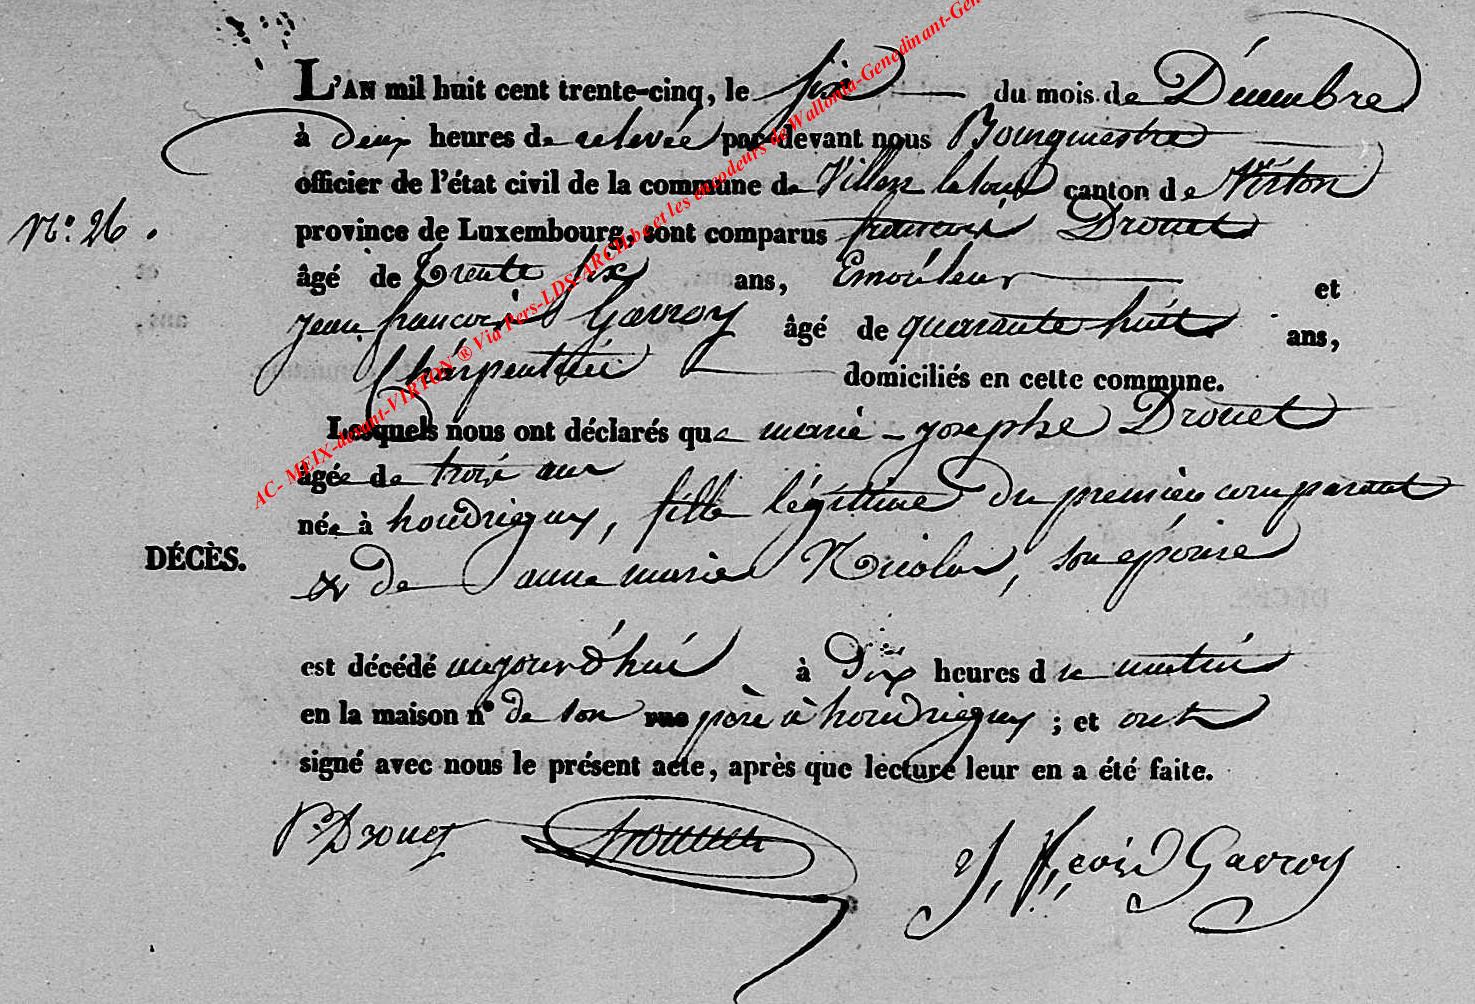 L'AN mil huit cent trente-cinq, le six du mois de Décembre
à deux heures de relevée par-devant nous Bourguestre
officier de l'état civil de la commune de Villers la loue canton de Virton
N.° 26.
province de Luxembourg, sont comparus francois Drouet
âgé de trente six ans, Emouleur et
jean francois Gavroy âgé de quarante huit ans,
Charpentier domiciliés en cette commune.
Lesquels nous ont déclarés que marie-josephe Drouet
âgée de trois ans
née à houdrigny, fille légitime du premier comparant
DÉCÈS.
& de anne marie Nicolas, son epouse
est décédé aujourd'hui à Dix heures du matin
en la maison n° de son rue père à houdrigny ; et ont
signé avec nous le présent acte, après que lecture leur en a été faite.
Drouet J, f, çois Gavroy
AC- MEIX-devant-VIRTON ® Via Pers-LDS-ARCH.be et les encodeurs de Wallonia-Genedinant-Gen